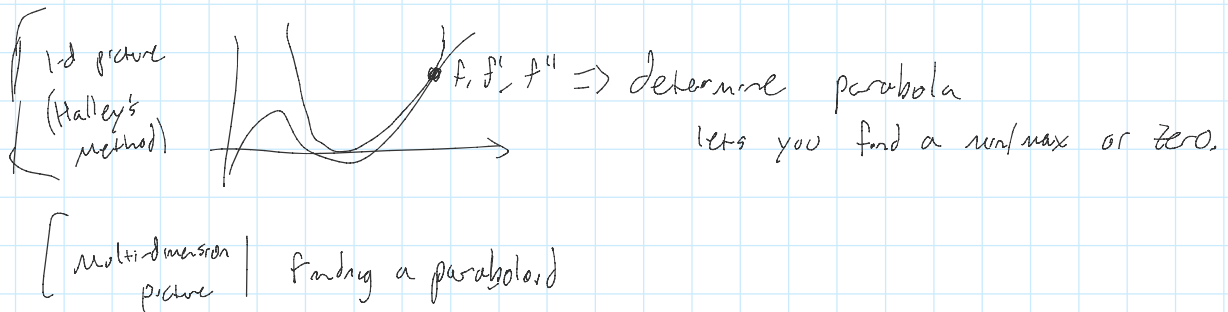 1-d picture
(Halley's
Method)
f, f', f'' => determine parabola
lets you find a min/max or zero.
Multi-dimension
picture
finding a paraboloid